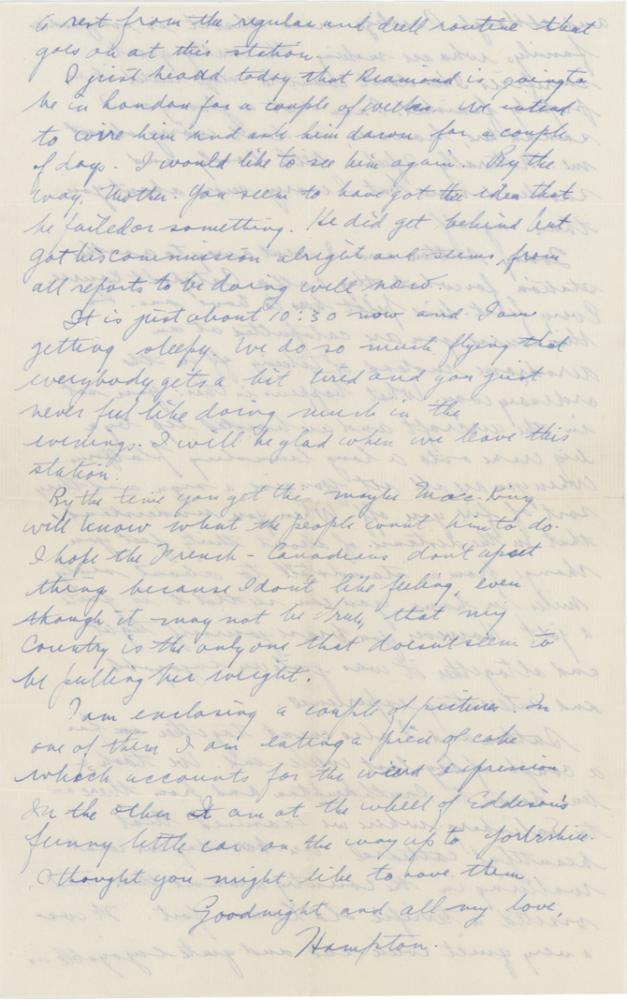 a rest from the regular and dull routine that
goes on at this station.
I just heard today that Reamond is going to
be in London for a couple of weeks. We intend
to wire him and ask him down for a couple
of days. I would like to see him again. By the
way, Mother. You seem to have got the idea that
he failed or something. He did get behind but
got his commission alright and seems from
all reports to be doing well now.
It is just about 10:30 now and I am
getting sleepy. We do so much flying that
everybody gets a bit tired and you just
never feel like doing much in the
evenings. I will be glad when we leave this
station.
By the time you get this maybe Mac. King
will know what the people want him to do.
I hope the French-Canadians don't upset
thing because I don't like feeling, even
though it may not be true, that my
Country is the only one that doesnt seem to
be pulling her weight.
I am enclosing a couple of pictures. In
one of them I am eating a piece of cake
which accounts for the weird expression
In the other I am at the wheel of Eddison's
funny little car on the way up to Yorkshire.
I thought you might like to have them
Goodnight and all my love,
Hampton.